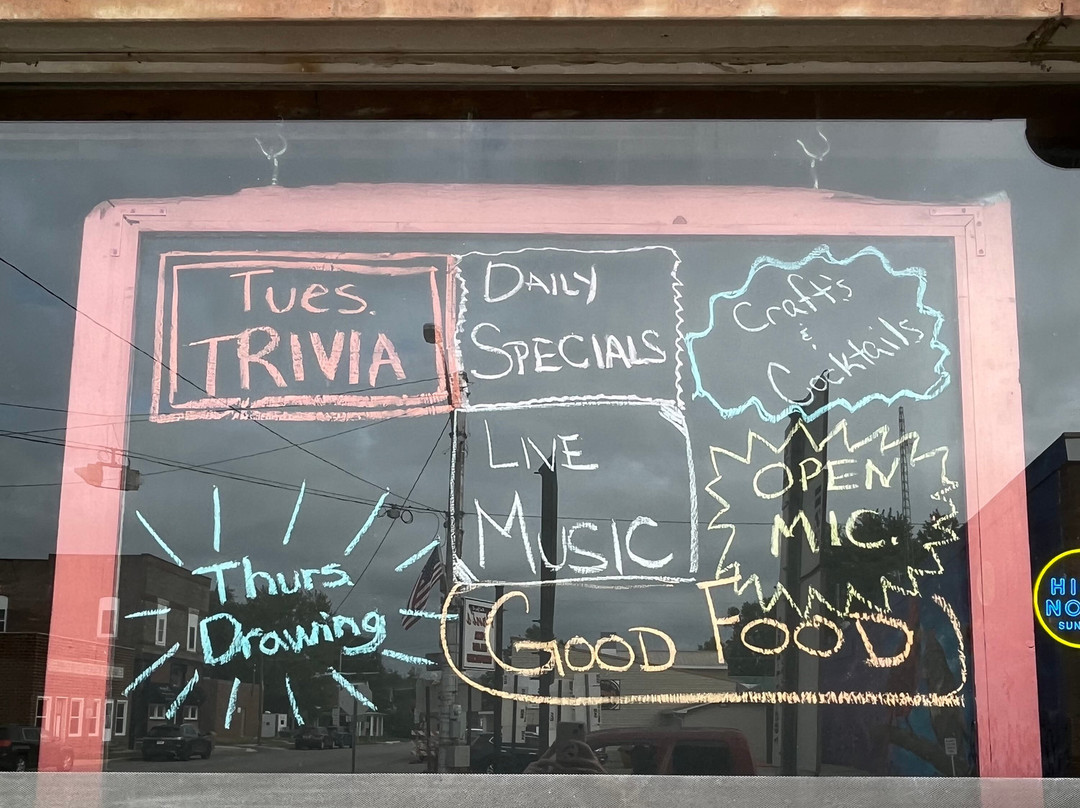 Tues.
TRIVIA
DAILY
SPECIALS
Crafts
&
Cocktails
LIVE
MUSIC
OPEN
MIC.
Thurs.
Drawing
GOOD FOOD
HI
NO
SUN